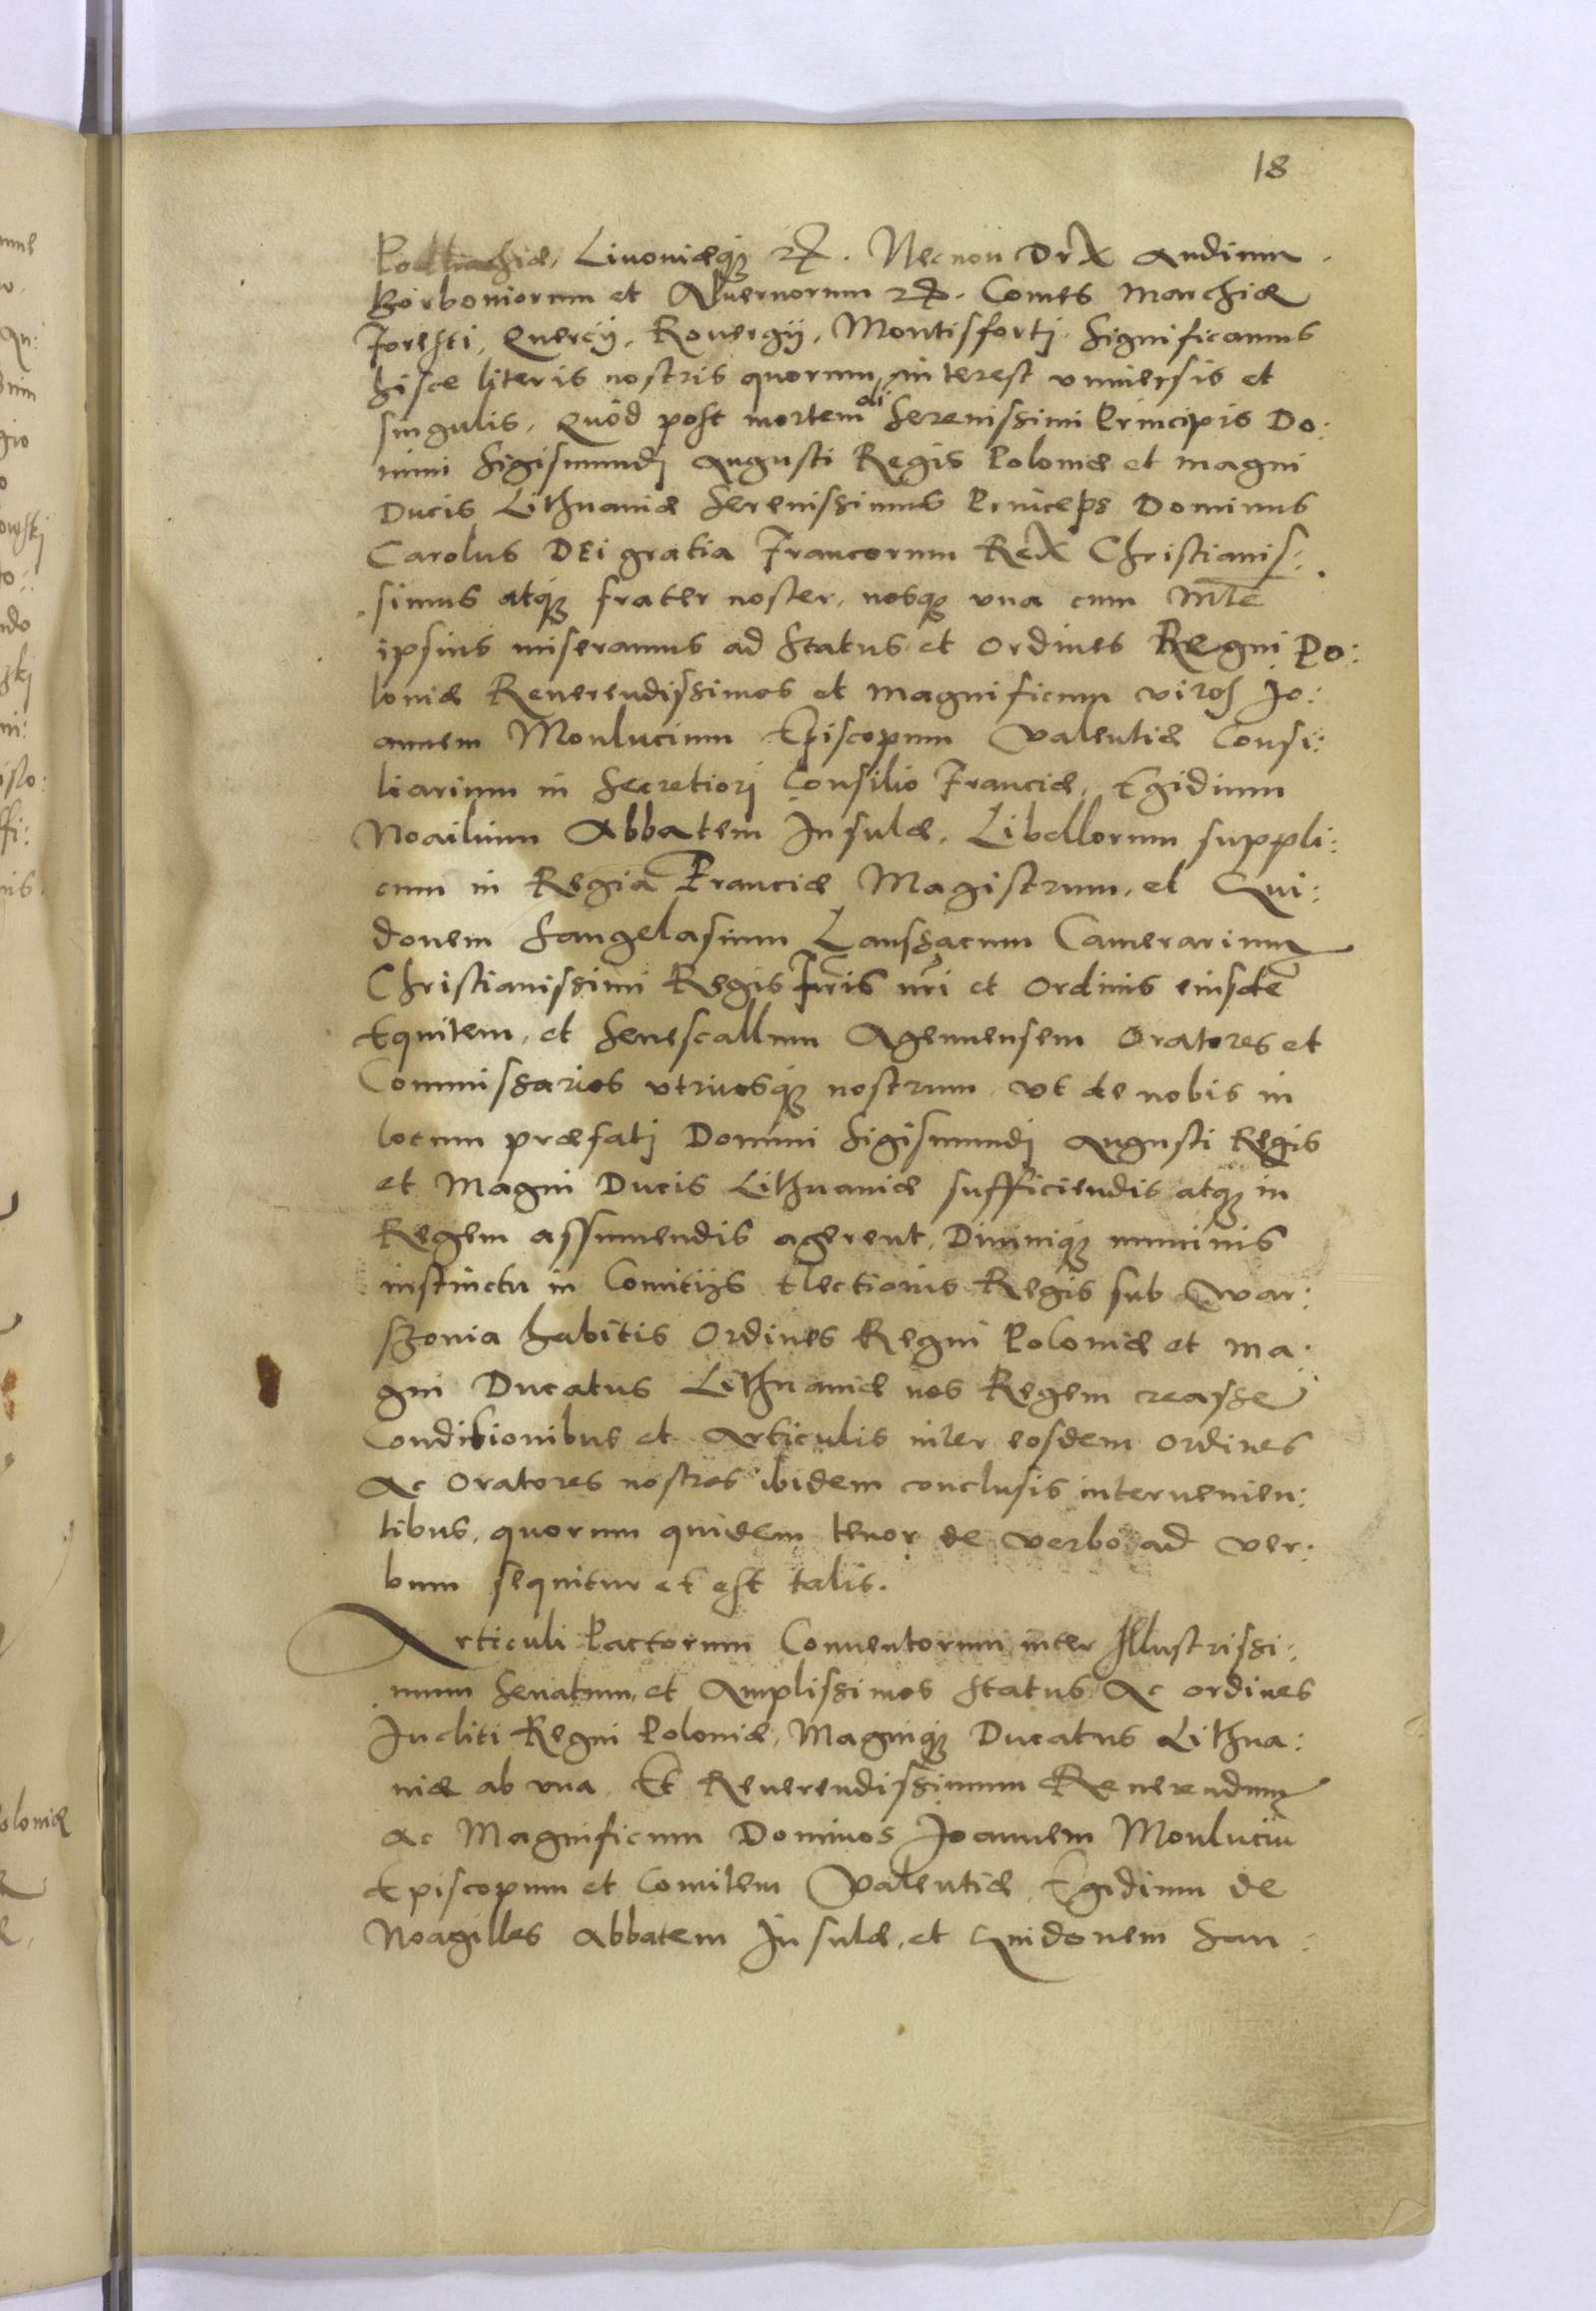 18
Podlachiæ, Livoniæq3 etc. Necnon Dux Andium
Borboniorum et Avernorum etc. Comes Marchiæ
Foresti, Quercij, Rovergij, Montisfortj. Significamus
hisce literis nostris quorum interest universis et
singulis, Quòd post mortem olī Serenissimi Principis Do:
mini Sigismundj Augusti Regis Poloniæ et magni
Ducis Lithuaniæ Serenissimus Princeps Dominus
Carolus DEi gratia Francorum REX Christianis:
simus atq3 frater noster, nosq3 vna cum Mte
ipsius miseramus ad Status et Ordines Regni Po:
loniæ Reuerendissimos et magnificum viros Jo:
annem Monlucium Episcopum Valentiæ Consi:
liarium in Secretiorj Consilio Franciæ, Egidium
Noailium Abbatem Insulæ, Libellorum suppli:
cum in Regia Franciæ Magistrum, et Gui:
donem Sangelasium Lanssacum Camerarium
Christianissimi Regis Fr̃is nr̃i et Ordinis eiusdē
Equitem, et Senescallum Agennensem Oratores et
Commissarios vtriusq3 nostrum vt de nobis in
locum præfatj Domini Sigismundj Augusti Regis
et Magni Ducis Lithuaniæ sufficiendis atq3 in
Regem assumendis agerent, Diuiniq3 numinis
instinctu in Comitijs Electionis Regis sub War:
szouia habitis Ordines Regni Poloniæ et Ma:
gni Ducatus Lithuaniæ nos Regem creasse
Conditionibus et Articulis inter eosdem ordines
Ac Oratores nostros ibidem conclusis interuenien:
tibus, quorum quidem tenor de verbo ad ver:
bum sequitur et est talis.
Articuli Pactorum Conuentorum inter Illustrissi:
mum Senatum, et Amplissimos Status Ac ordines
Incliti Regni Poloniæ, Magniq3 Ducatus Lithua:
niæ ab vna Et Reuerendissimum Reuerendum
Ac Magnificum Dominos Joannem Monluciū
Episcopum et Comitem Valentiæ Egidium de
Noagilles Abbatem Insulæ, et Guidonem San: